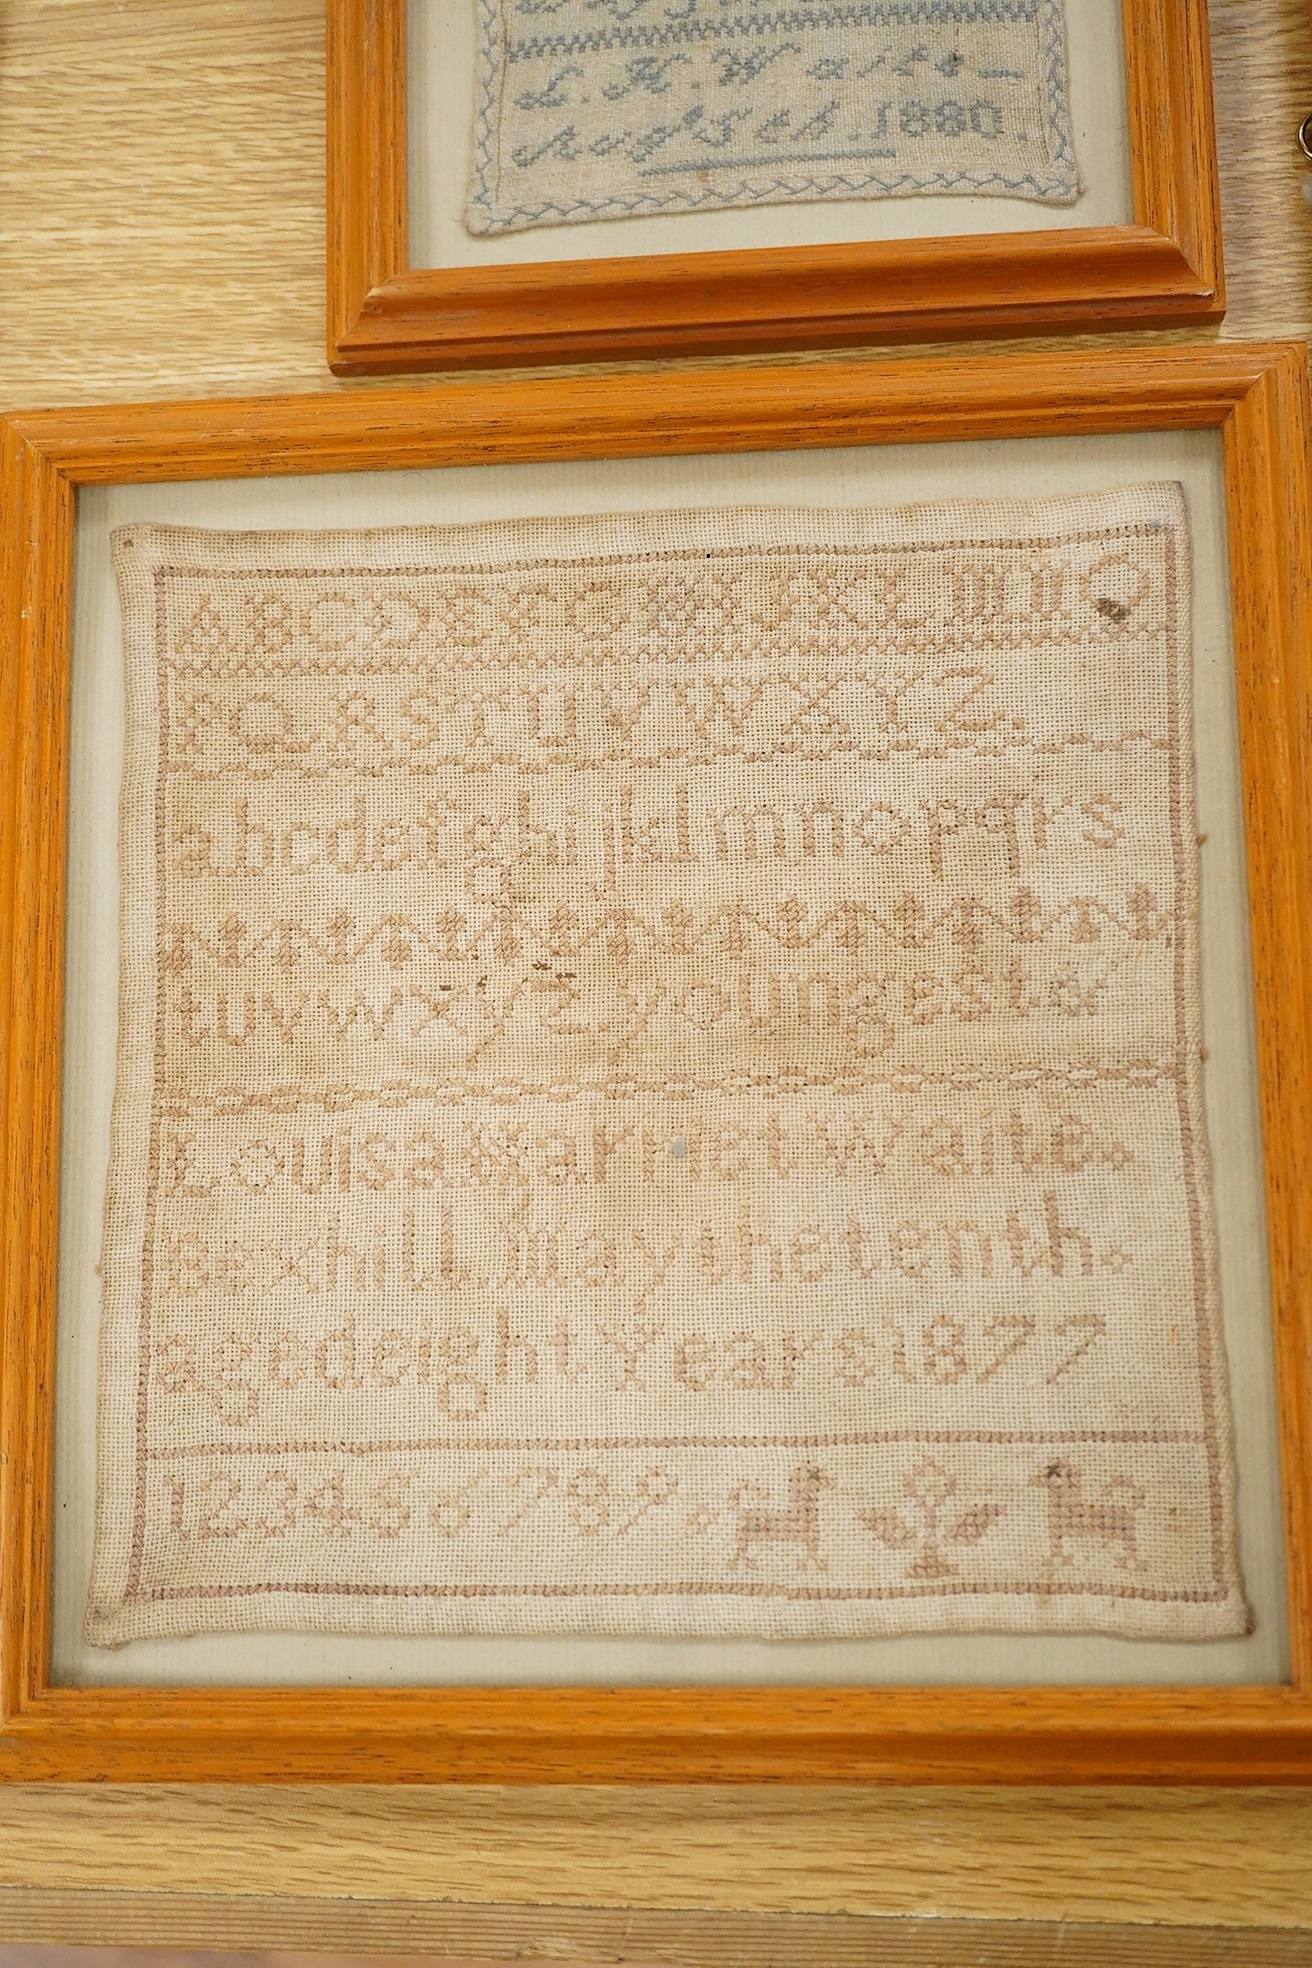 L. K. W aite
1880.
ABCDEFGHIJKL MNO
PQRSTUVWXYZ.
abcdefghijklmnopqrs
tuvwxyz youngest &
Louisa Harriet Waite.
Bexhill May the tenth.
aged eight Years 1877
123456789.